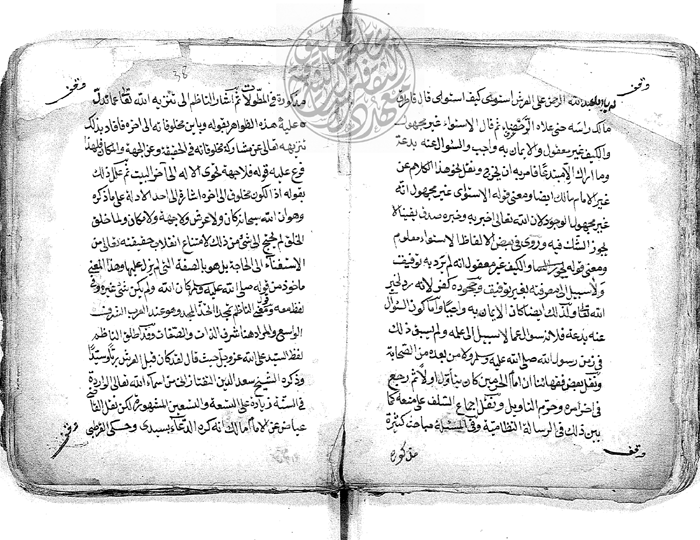 وقف
يا ابا عبد الله الرحمن على العرش استوى كيف استوى قال فاطرق
مالك راسه حتى علاه الرحضاء ثم قال الاستواء غير مجهول
والكيف غير معقول والايمان به واجب والسوال عنه بدعة
وما اراك الا مبتدعا فامر به ان يخرج ونقل نحو هذا الكلام عن
غير الامام مالك ايضا ومعنى قوله الاستواى غير مجهول انه
غير مجهول الوجود لان الله تعالى اخبر به وخبره صدق يقينا لا
يجوز الشك فيه وروى في بعض الالفاظ الاستواء معلوم
ومعنى قوله والكيف غير معقوله انه لم يرد به توقيف
ولا سبيل الى معرفته بغير توقيف وجحوده كفر لانه رد لخبر
الله تعالى ولذلك ايضا كان الايمان به واجبا واما كون السؤال
عنه بدعة فلانه سوال عما لا سبيل الى علمه ولم يسبق ذلك
في زمن رسول الله صلى الله عليه وسلم ولا من بعده من الصحابة
ونقل بعض فقهائنا ان امام الحرمين كان يتأول اولا ثم رجع
في اخر امره وحرم التاويل ونقل اجماع السلف على منعه كما
بين ذلك في الرسالة النظامية وفي المسئلة مباحث كثيرة
مذكورة
وقف
وقف
38
مذكورة في المطولات ثم اشار الناظم الى تنزيه الله تعالى عما تدل
عليه هذه الظواهر بقوله وباين مخلوقاته الى اخره فافاد بذلك
تنزيهه تعالى عن مشاركة مخلوقاته في الحقيقة وعن الجهة والمكان ولهذا
فرع عليه قوله فلا جهة تحوى الاله الى آخر البيت ثم علل ذلك
بقوله اذ الكون مخلوق الى اخره اشارة الى احد الادلة على ما ذكره
وهو ان الله سبحانه كان ولا عرش ولا جهة ولا مكان ولما خلق
الخلق لم يحتج الى شئ من ذلك لامتناع انقلاب حقيقته تعالى من
الاستغناء الى الحاجة بل هو بالصفة التي لم يزل عليها وهذا المعنى
ماخوذ من قوله صلى الله عليه وسلم كان الله ولم يكن شئ غيره وفى
الناظم بمجد المجد وهو عند العرب الشرف
الواسع والمراد هنا شرف الذات والصفات وقد اطلق الناظم
لفظ السيد على الله عز وجل حيث قال لقد كان قبل العرش ربا وسيدا
وذكره الشيخ سعد الدين التفتازاني من اسماء الله تعالى الواردة
في السنة زيادة على التسعة والتسعين المشهورة لكن نقل القاضي
عياض عن الامام مالك انه كره الدعاء بسيدى وحكى القرطبي
وقف